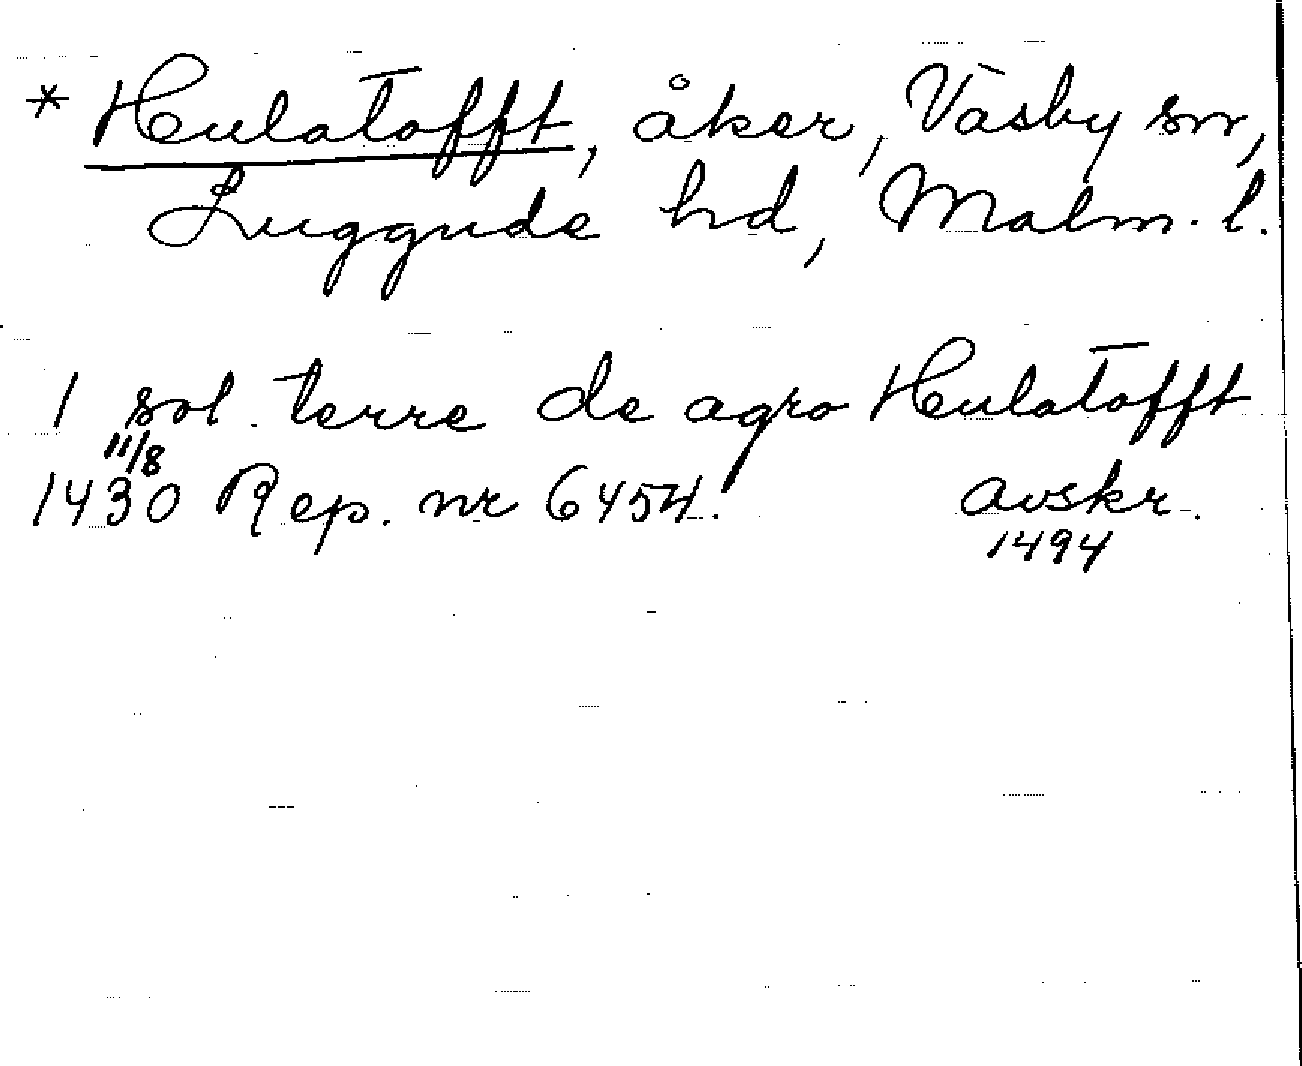 * Hulatofft, åker, Väsby sn,
Luggude hd, Malm. l.
1 sol. terre de agro Hulatofft
11/8
1430 Rep. nr 6454. avskr.
1494